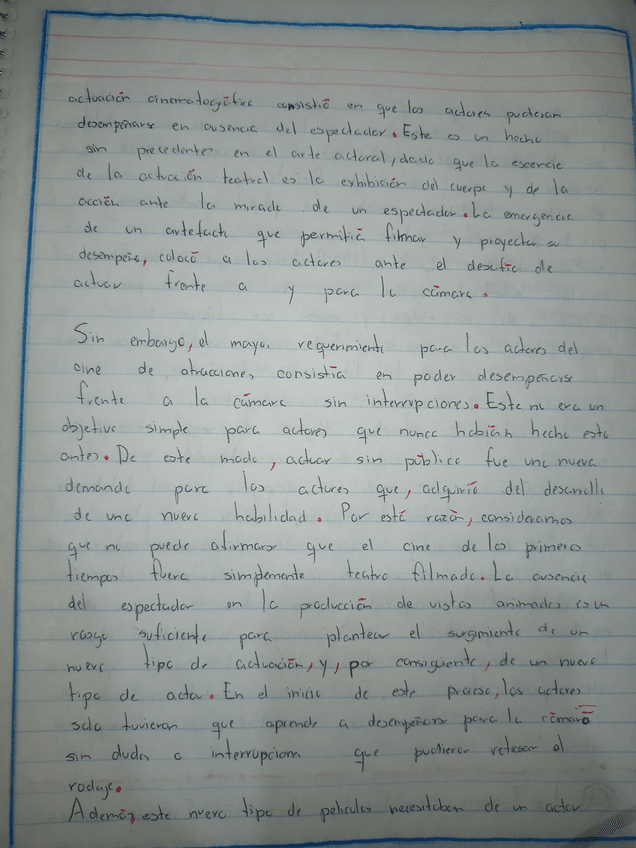 actuación cinematográfica consistió en que los actores pudieran
desempeñarse en ausencia del espectador. Este es un hecho
sin precedentes en el arte actoral, dado que la esencia
de la actuación teatral es la exhibición del cuerpo y de la
acción ante la mirada de un espectador. La emergencia
de un artefacto que permitía filmar y proyectar su
desempeño, colocó a los actores ante el desafío de
actuar frente a y para la cámara.
Sin embargo, el mayor requerimiento para los actores del
cine de atracciones consistía en poder desempeñarse
frente a la cámara sin interrupciones. Este no era un
objetivo simple para actores que nunca habían hecho esto
antes. De este modo, actuar sin público fue una nueva
demanda para los actores que, adquirió del desarrollo
de una nueva habilidad. Por está razón, consideramos
que no puede afirmarse que el cine de los primeros
tiempos fuera simplemente teatro filmado. La ausencia
del espectador en la producción de vistas animadas es un
rasgo suficiente para plantear el surgimiento de un
nuevo tipo de actuación, y, por consiguiente, de un nuevo
tipo de actor. En el inicio de este proceso, los actores
solo tuvieron que aprender a desempeñars para la cámara
sin dudas o interrupcions que pudieran retrasar el
rodaje.
Además, este nuevo tipo de peliculas necesitaban de un actor